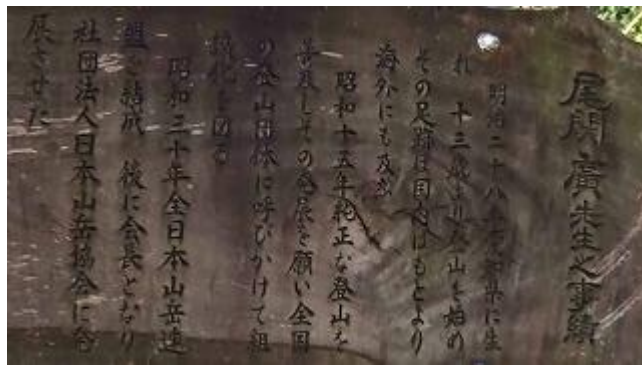 尾関廣先生之事績
明治二十八年 県に生
れ 十三歳より登山を始め
その足跡は国内はもとより
海外にも及ぶ
昭和十五年純正な登山を
普及しその発展を願い全国
の登山団体に呼びかけて組
織化を図る
昭和三十年全日本山岳連
盟を結成 後に会長となり
社団法人日本山岳協会に発
展させた